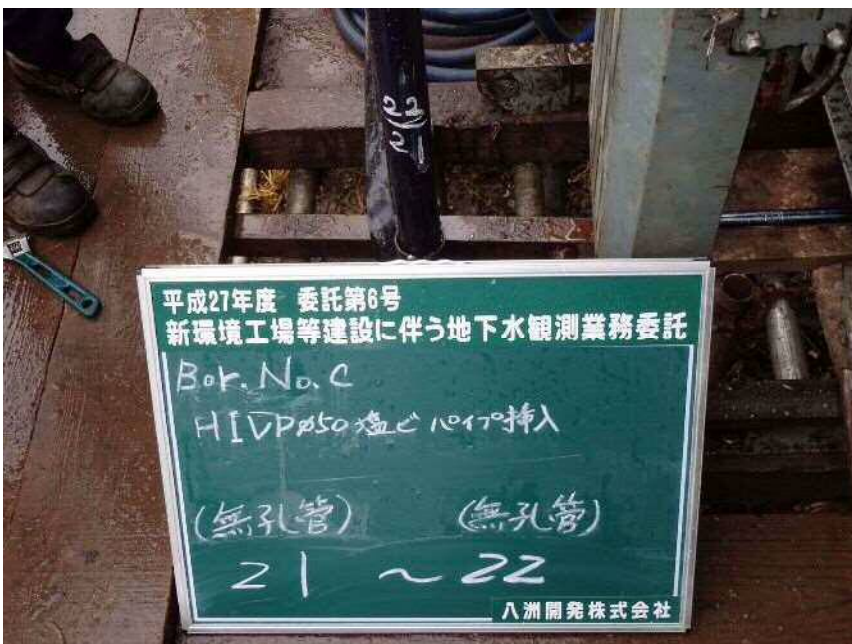 22
21
平成27年度 委託第6号
新環境工場等建設に伴う地下水観測業務委託
Bor. No. C
HIVPφ50塩ビパイプ挿入
(無孔管) (無孔管)
21 ~ 22
八洲開発株式会社